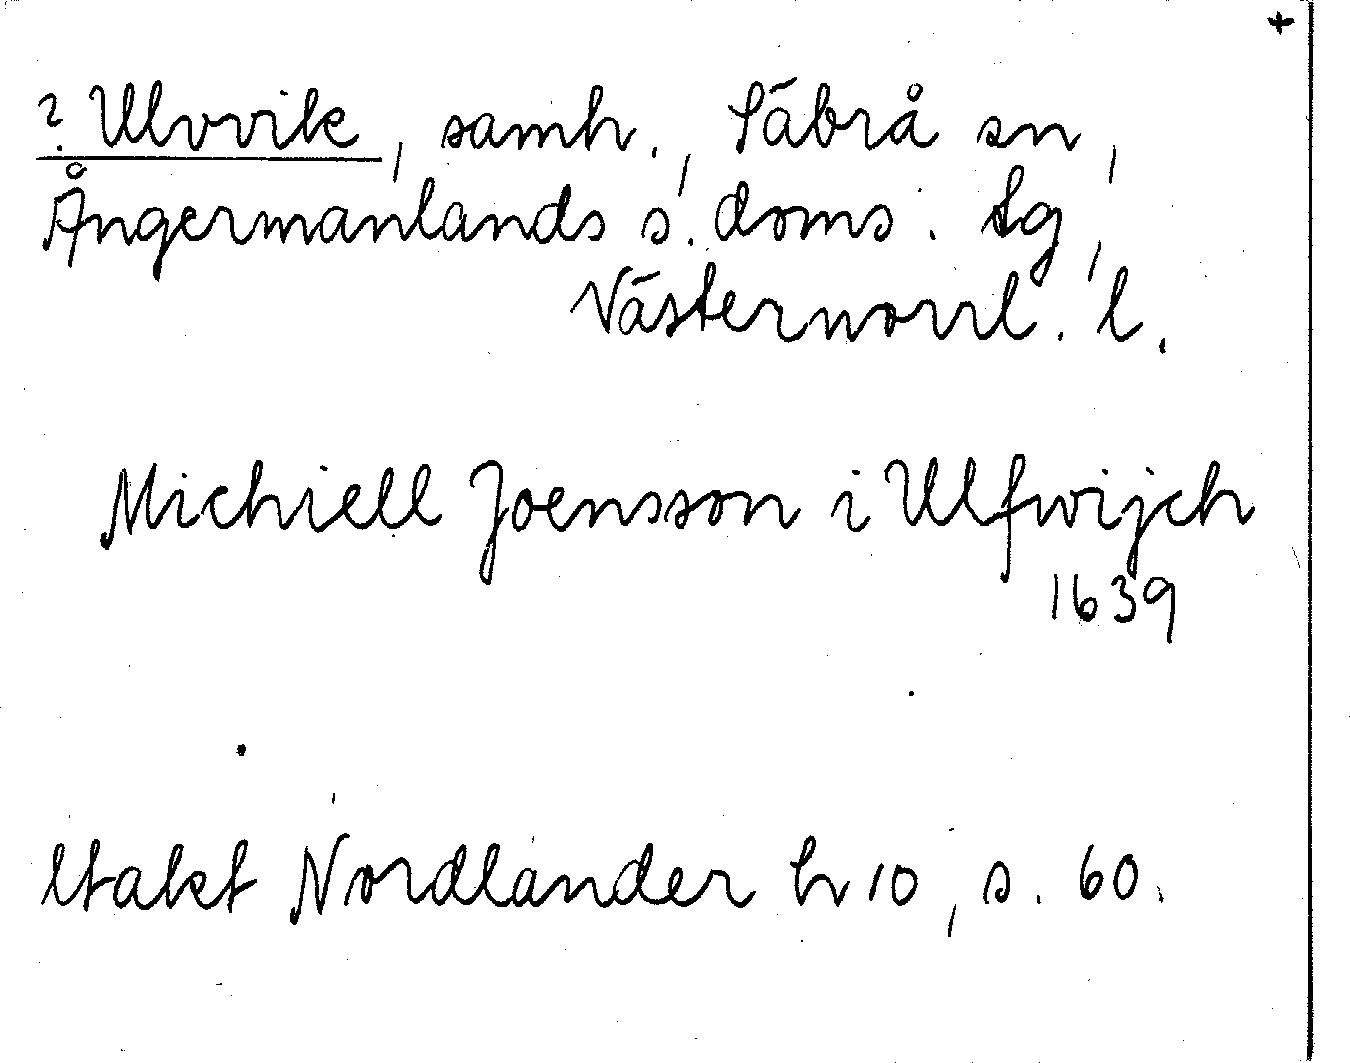 +
? Ulvvik, samh., Säbrå sn,
Ångermanlands s. doms. tg,
Västernorrl. l.
Michiell Joensson i Ulfwijch
1639
Utakt Nordlander h 10, s. 60.